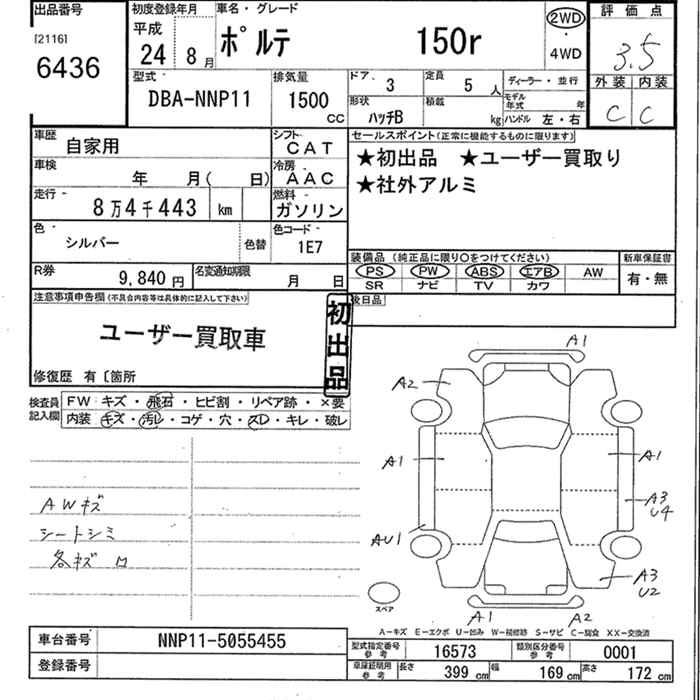 出品番号 初度登録年月 車名・グレード 2WD 評価点
[2116] 平成 ・ 3.5
6436 24年 8月 ポルテ 150r 4WD
型式 排気量 ドア. 3 定員 5人 ディーラー・並行 外装 内装
DBA-NNP11 1500cc 形状 ハッチB 積載 kg モデル年式 年 C C
ハンドル 左・右
車歴 自家用 シフト CAT セールスポイント(正常に機能するものに限ります)
車検 年 月( 日) 冷房 AAC ★初出品 ★ユーザー買取り
走行 8万4千443 km 燃料 ガソリン ★社外アルミ
色 シルバー 色替 色コード 1E7
装備品(純正品に限り○をつけてください) 新車保証書
R券 9,840円 名変通知期限 月 日 PS PW ABS エアB AW 有・無
SR ナビ TV カワ
注意事項申告欄(不具合内容等は具体的に記入して下さい) 後日品
ユーザー買取車 初出品
修復歴 有〔箇所
検査員記入欄 FW キズ・飛石・ヒビ割・リペア跡・×要
内装 キズ・汚レ・コゲ・穴・スレ・キレ・破レ
A1
A2
A1 A1
AWキズ A3
U4
シートシミ AU1
各キズ ロ A3
U2
スペア
A1 A2
A―キズ E―エクボ U―凹み W―補修跡 S―サビ C―腐食 XX―交換済
車台番号 NNP11-5055455 型式指定番号参考 16573 類別区分番号参考 0001
登録番号 車庫証明用参考 長さ 399cm 幅 169cm 高さ 172cm